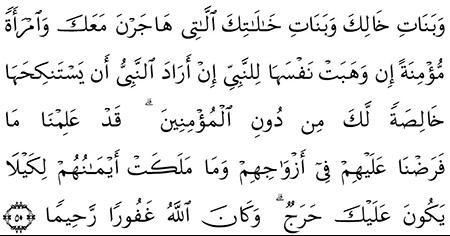 وَبَنَاتِ خَالِكَ وَبَنَاتِ خَٰلَٰتِكَ ٱلَّٰتِى هَاجَرْنَ مَعَكَ وَٱمْرَأَةً
مُّؤْمِنَةً إِن وَهَبَتْ نَفْسَهَا لِلنَّبِىِّ إِنْ أَرَادَ ٱلنَّبِىُّ أَن يَسْتَنكِحَهَا
خَالِصَةً لَّكَ مِن دُونِ ٱلْمُؤْمِنِينَ ۗ قَدْ عَلِمْنَا مَا
فَرَضْنَا عَلَيْهِمْ فِىٓ أَزْوَٰجِهِمْ وَمَا مَلَكَتْ أَيْمَٰنُهُمْ لِكَيْلَا
يَكُونَ عَلَيْكَ حَرَجٌ ۗ وَكَانَ ٱللَّهُ غَفُورًا رَّحِيمًا ٥٠